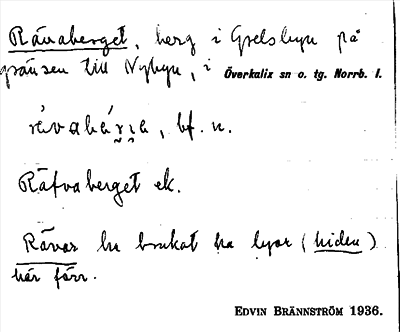 Rävaberget, berg i Grelsbyn på
gränsen till Nybyn, i Överkalix sn o. tg. Norrb. l.
bf. n.
Räfvaberget ek.
Rävar ha brukat ha lyor (hiden)
här förr.
EDVIN BRÄNNSTRÖM 1936.